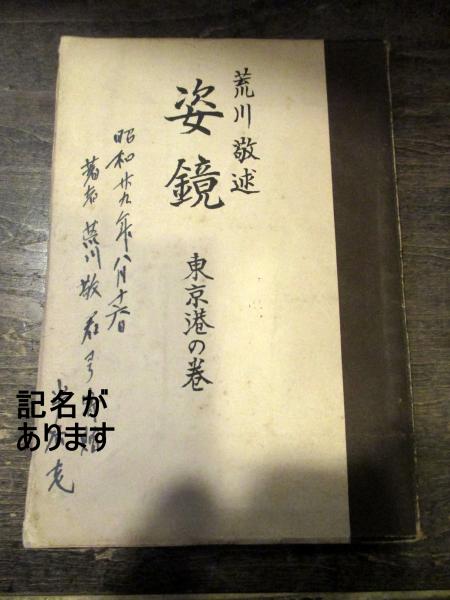 荒川敬述
姿鏡
東京港の巻
昭和廿九年八月十六日
著者荒川敬君ヨリ
記名が
あります